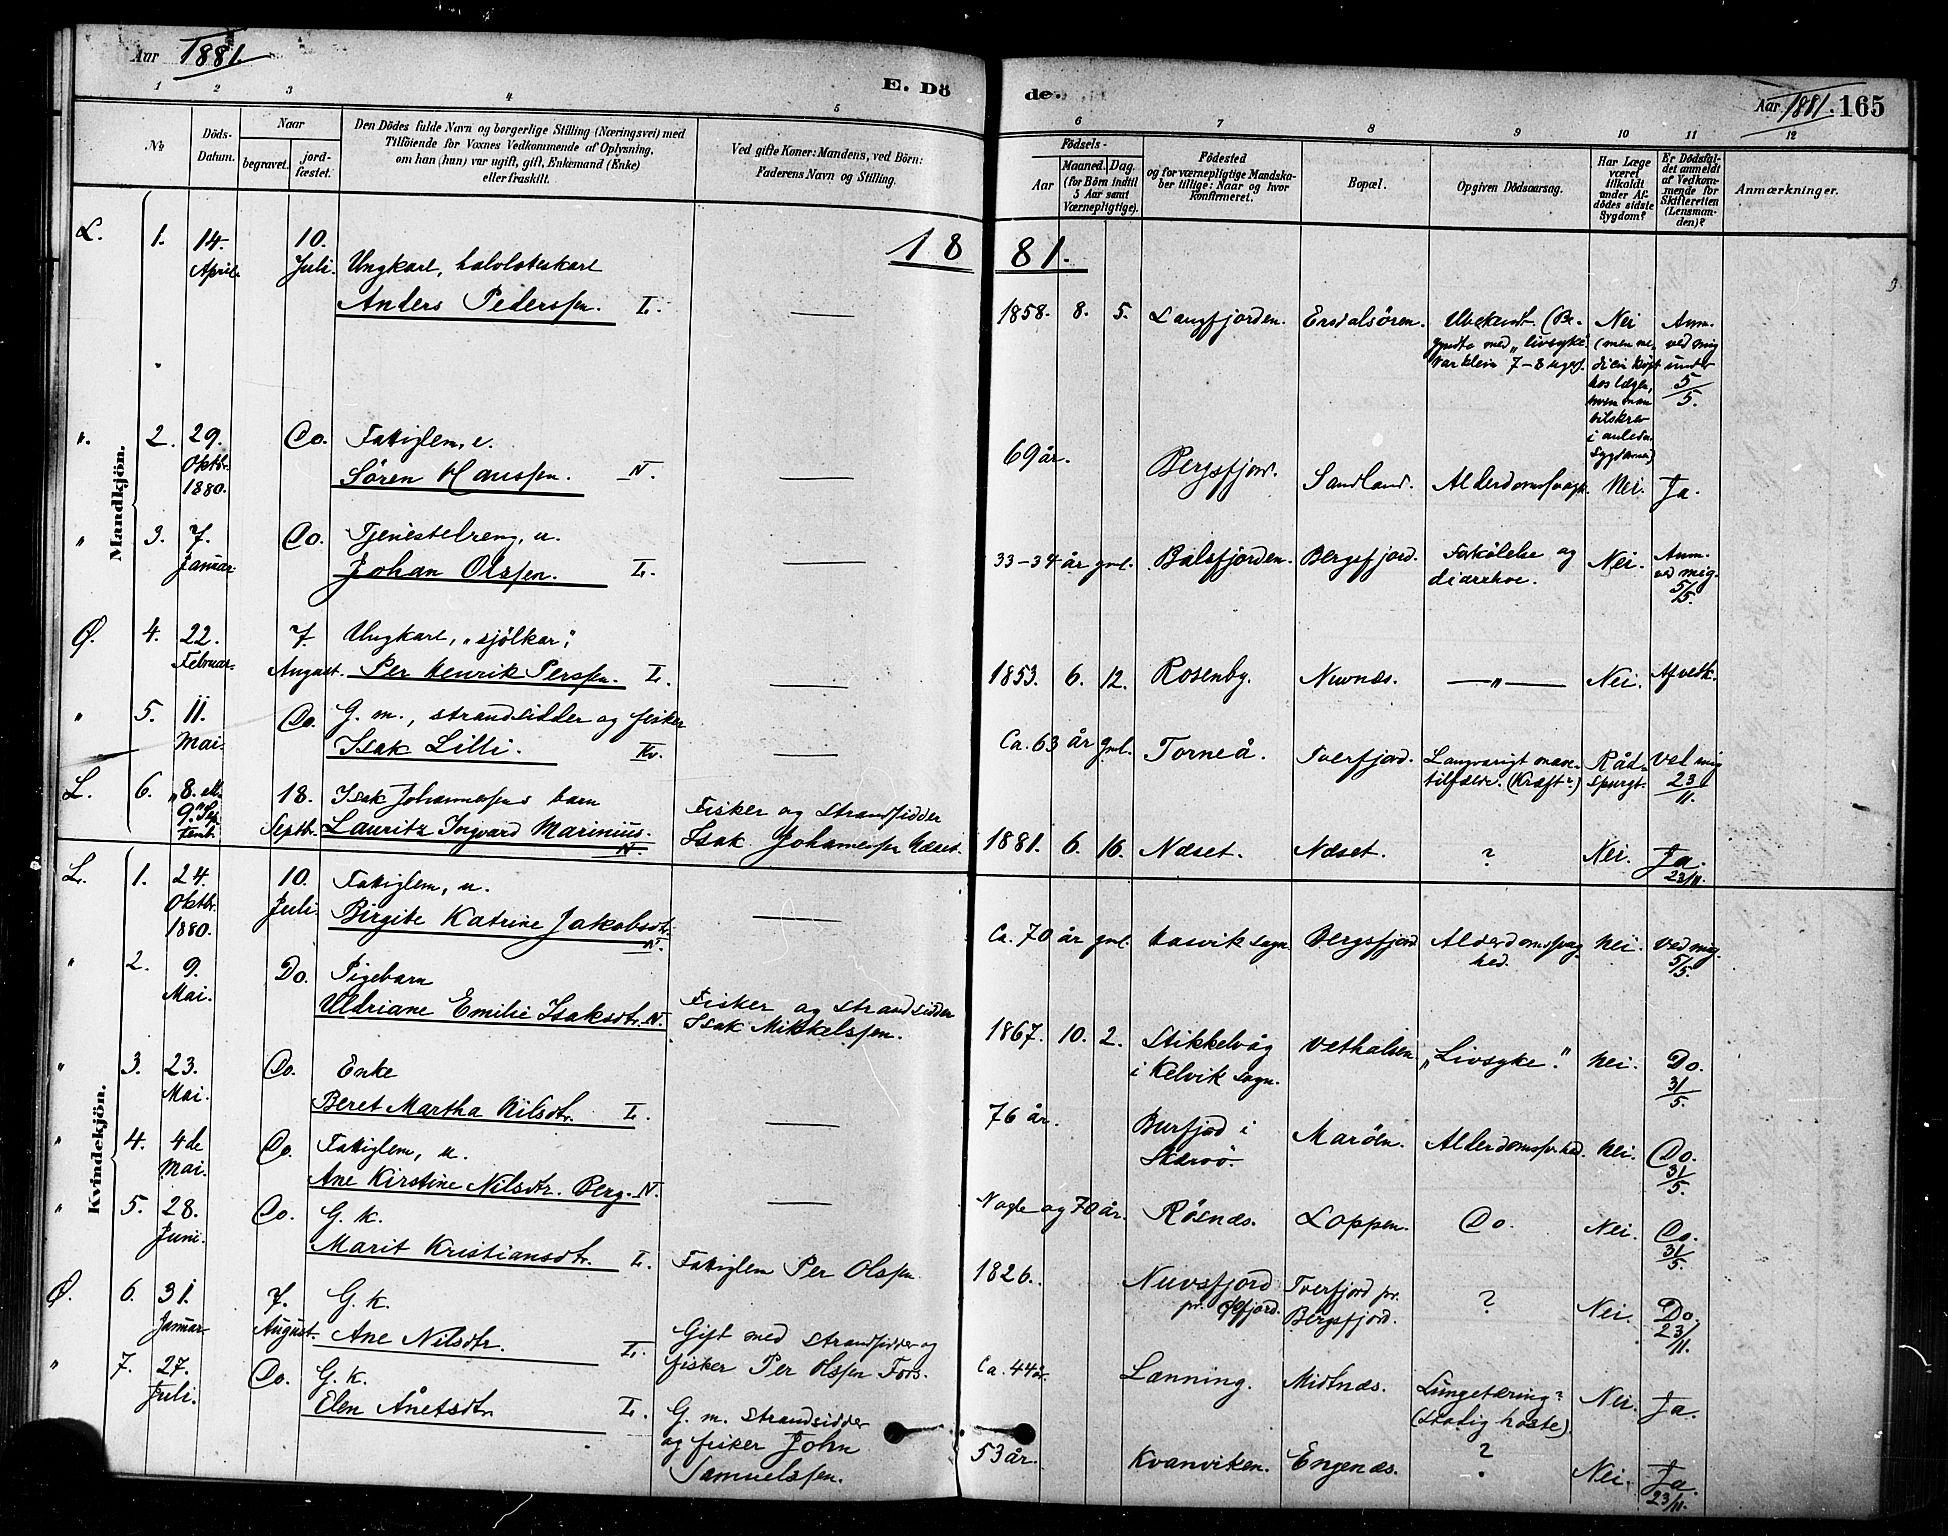 Aar 1881.
E. Dö
de.
Aar 1881. 165
1 2 3 4 5
6 7 8 9 10 11 12
No
Döds-
Datum.
Naar
begravet.
jord-
fæstet.
Den Dödes fulde Navn og borgerlige Stilling (Næringsvei) med
Tilföiende for Voxnes Vedkommende af Oplysning,
om han (hun) var ugift, gift, Enkemand (Enke)
eller fraskilt.
Ved gifte Koner: Mandens, ved Börn:
Faderens Navn og Stilling.
Födsels-
Aar
Maaned. Dag.
(for Börn indtil
5 Aar samt
Værnepligtige).
Födested
og for værnepligtige Mandska-
ber tillige: Naar og hvor
konfirmeret.
Bopæl.
Opgiven Dödsaarsag.
Har Læge
været
tilkaldt
under Af-
dödes sidste
Sygdom?
Er Dödsfal-
det anmeldt
af Vedkom-
mende for
Skifteretten
(Lensman-
den)?
Anmærkninger.
1881.
Mandkjön.
L. 1. 14. April. 10. Juli. Ungkarl, halvlotskarl
Anders Pederssen. L.
1858. 8. 5. Langfjorden. Ersdalsören. Ubekendt. (Be-
gyndte med "livsyke".
Var klein 7-8 uger.
Nei
(men me-
dicin kjöpt
hos lægen,
hvem man
tilskrev
i anledn.
Sygdomen)
Anm.
ved mig
under
5/5.
". 2. 29. Oktbr. 1880. Do. Fattiglem, u.
Sören Hanssen. N.
69 år. Bergsfjord. Sandland. Alderdomssvagh. Nei. Ja.
" 3. 7. Januar. Do. Tjenestedreng, u.
Johan Olssen. L.
33-34 år gml. Balsfjorden. Bergsfjord. Forkölelse og
diarrhoe. Nei. Anm.
ved mig.
5/5.
Ø. 4. 22. Februar. 7. August. Ungkarl, "sjölkar",
Per Henrik Perssen. L.
1853. 6. 12. Rosenby. Nuvnæs. —"— Nei. Af vedk.
" 5. 11. Mai. Do. G. m., strandsidder og fisker
Isak Lilli. Kv.
Ca. 63 år gml. Torneå. Tverfjord. Langvarigt mave-
tilfælde. (Kræft?) Råd-
spurgt. Ved mig
23/11.
L. 6. "8. ell. 9." Sep-
temb. 18. Septb. Isak Johannessens barn
Lauritz Ingvard Marinius. N.
Fisker og strandsidder
Isak Johannessen Næset.
1881. 6. 16. Næset. Næset. ? Nei. Ja.
23/11.
Kvindekjön.
L. 1. 24. Oktbr. 1880. 10. Juli. Fattiglem, u.
Birgite Katrine Jakobsdtr. N.
Ca. 70 år gml. Hasvik sogn. Bergsfjord Alderdomssvag-
hed. Nei. Ved mig.
5/5.
" 2. 9. Mai. Do. Pigebarn
Uldriane Emilie Isaksdtr. N.
Fisker og strandsidder
Isak Mikkelssen.
1867. 10. 2. Stikkelvåg
i Kelvik sogn. Vethalsen "Livsyke". Nei. Do.
31/5.
" 3. 23. Mai. Do. Enke
Beret Martha Nilsdtr. L.
76 år. Burfjod i
Skærvö. Maröen. Alderdomssv.hed. Nei. Do.
31/5.
" 4. 4de Mai. Do. Fattiglem, u.
Ane Kirstine Nilsdtr. Berg. N.
Nogle og 70 år. Rösnæs. Loppen. Do. Nei. Do.
31/5.
" 5. 28. Juni. Do. G. k.
Marit Kristiansdtr. L.
Fattiglem Per Olssen
1826. Nuvsfjord
pr. Öxfjord. Tverfjord pr.
Bergsfjord. ? Nei. Do.
23/11.
Ø. 6. 31. Januar. 7. August. G. k.
Ane Nilsdtr. L.
Gift med strandsidder og
fisker Per Olssen Fors.
Ca. 44 år. Lanning. Midtnæs. Lungetæring?
(stadig hoste). Nei. Ja.
" 7. 27. Juli. Do. G. k.
Elen Ånetsdtr. L.
G. m. strandsidder
og fisker John
Samuelssen.
53 år. Kvanviken. Engenæs. ? Nei. Ja.
23/11.